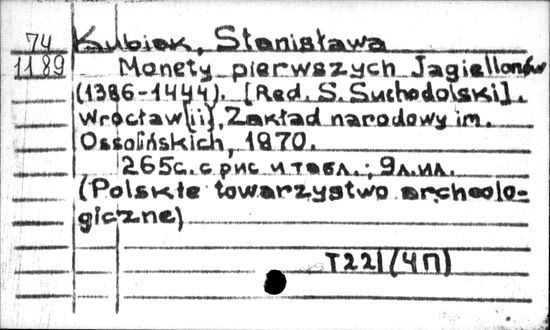 74
1189
Kubiak, Stanisława
Monety pierwszych Jagiellonów
(1386-1444). [Red. S. Suchodolski].
Wrocław[ii], Zakład narodowy im.
Ossolińskich, 1970.
265с. с рис и табл.; 9л.ил.
(Polskie towarzystwo archeolo-
giczne)
T221(4П)